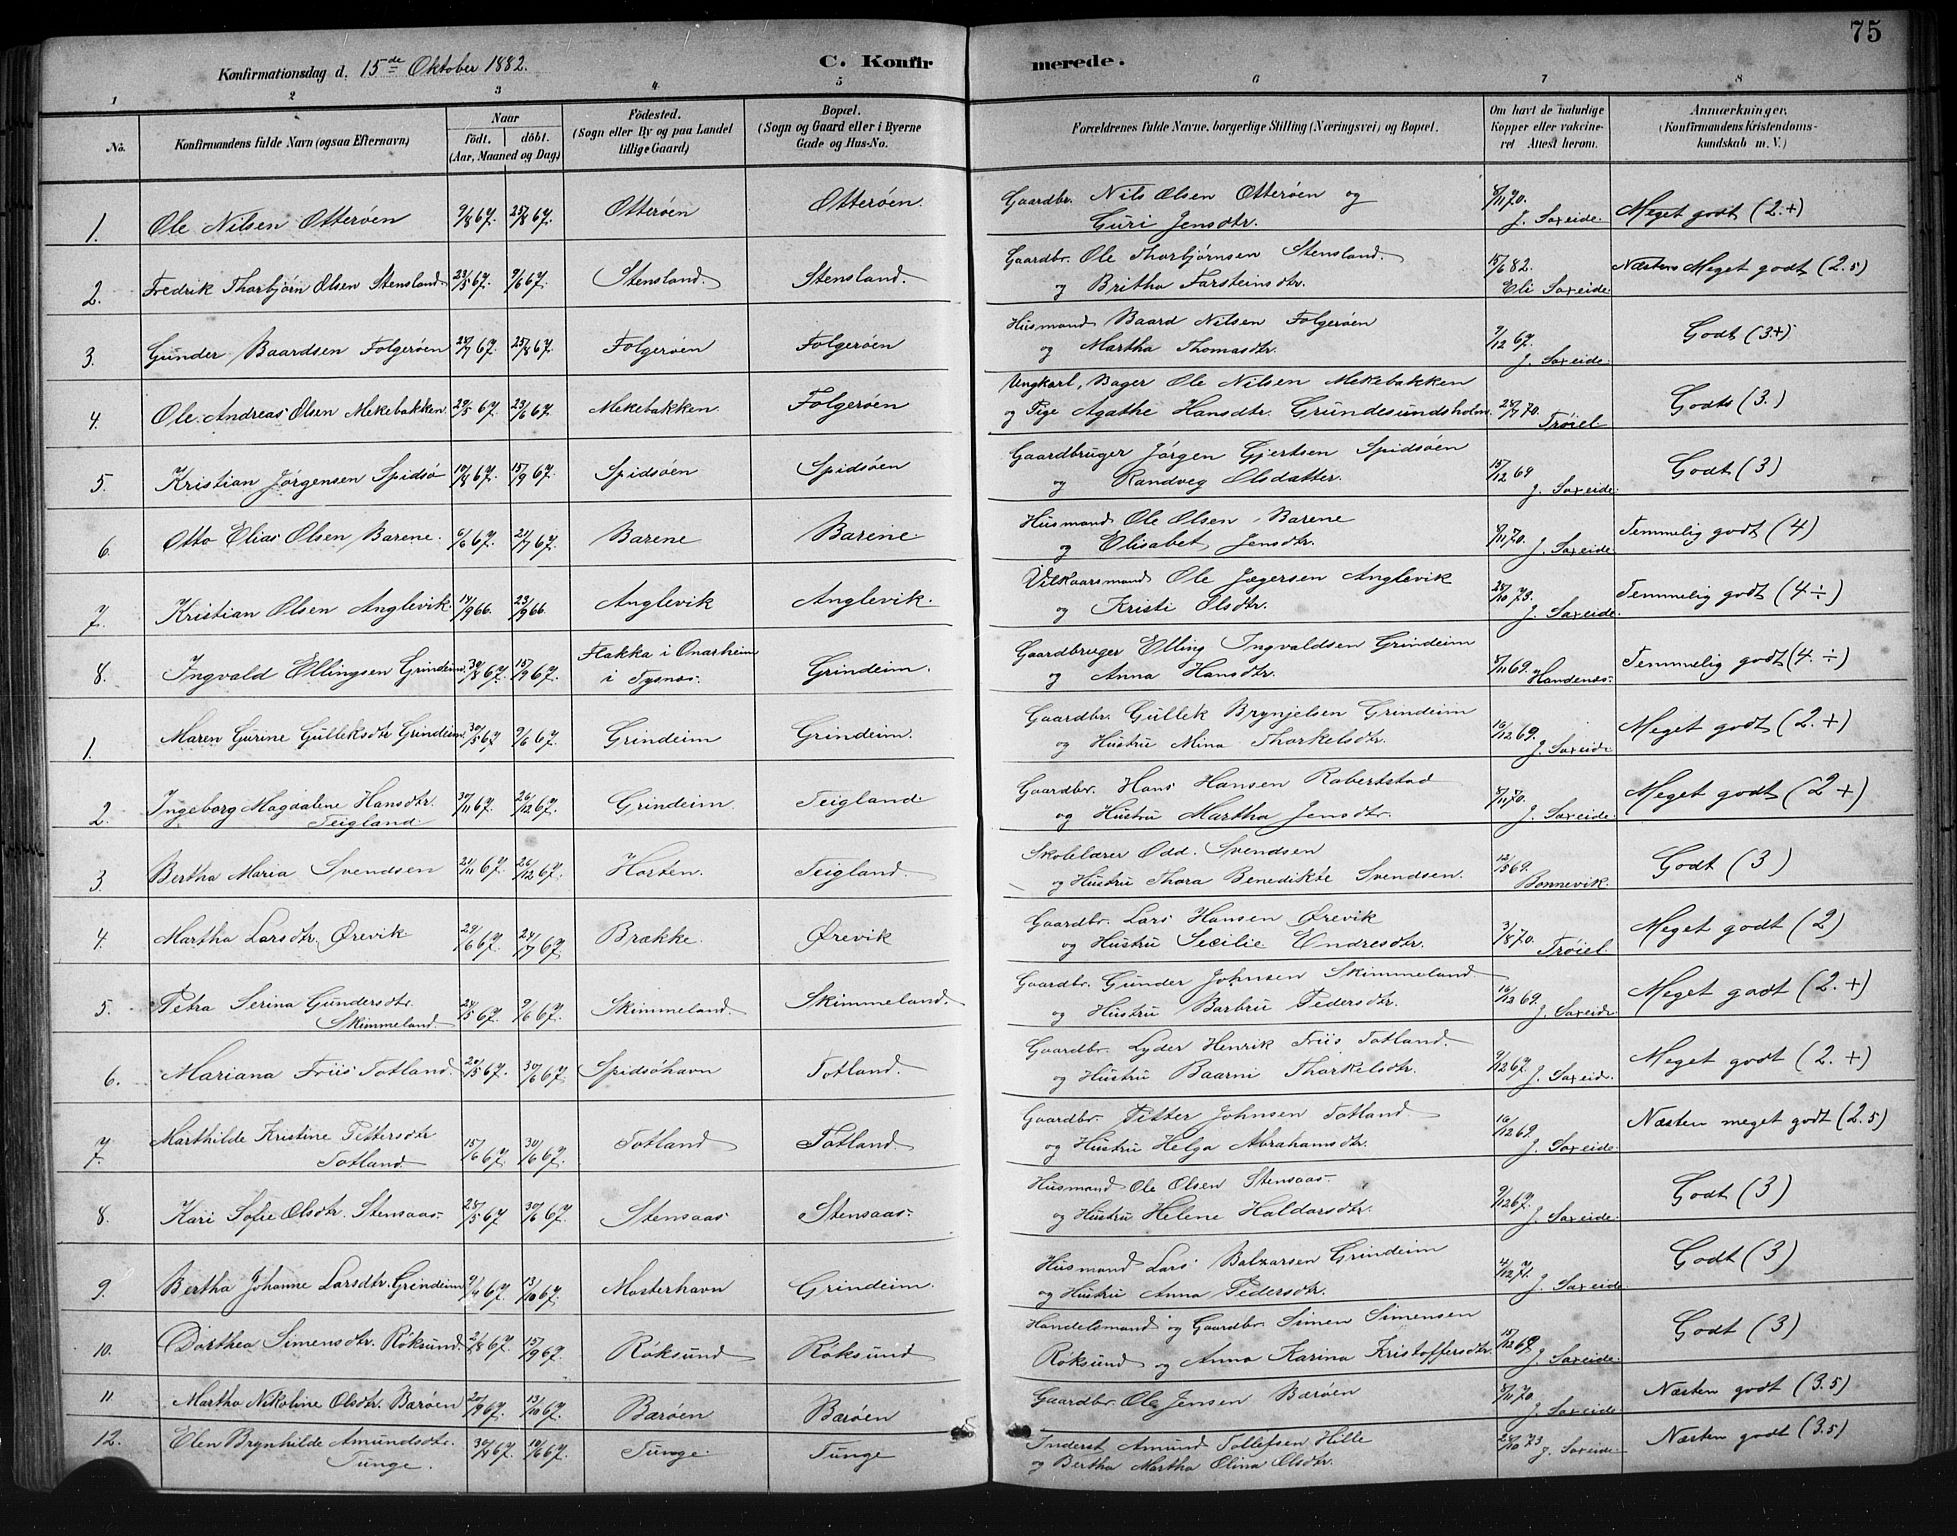 75
Konfirmationsdag d. 15de Oktober 1882.
C. Konfirmerede.
1 2 3 4 5 6 7 8
No.
Konfirmandens fulde Navn (ogsaa Efternavn)
Naar
født. døbt.
(Aar, Maaned og Dag)
Fødested.
(Sogn eller By og paa Landet
tillige Gaard)
Bopæl.
(Sogn og Gaard eller i Byerne
Gade og Hus-No.
Forældrenes fulde Navne, borgerlige Stilling (Næringsvei) og Bopæl.
Om havt de naturlige
Kopper eller vakcine-
ret Attest herom.
Anmærkninger,
(Konfirmandens Kristendoms-
kundskab m. V.)
1. Ole Nilsen Otterøen 9/8 67. 25/8 67. Otterøen Otterøen. Gaardbr. Nils Olsen Otterøen og
Guri Jensdtr. 8/11 70. J. Saxeide. Meget godt (2.+)
2. Fredrik Thorbjørn Olsen Stensland 23/5 67. 9/6 67. Stensland. Stensland. Gaardbr. Ole Thorbjørnsen Stensland.
og Britha Farsteinsdtr. 15/6 82. Eli Saxeide. Næsten Meget godt (2.5)
3. Gunder Baardsen Folgerøen 28/7 67. 25/8 67. Folgerøen Folgerøen Husmand Baard Nilsen Folgerøen
og Martha Thomasdtr. 9/12 67. J. Saxeide. Godt (3+)
4. Ole Andreas Olsen Mekebakken. 29/5 67. 23/6 67. Mekebakken. Folgerøen Ungkarl, Bager Ole Nilsen Mekebakken
og Pige Agathe Hansdtr. Grundesundsholm. 28/7 70. Trøiel Godt (3.)
5. Kristian Jørgensen Spidsø 10/8 67. 15/9 67. Spidsøen Spidsøen Gaardbruger Jørgen Gjertsen Spidsøen
og Randveg Olsdatter. 15/12 69. J. Saxeide. Godt (3)
6. Otto Elias Olsen Barene. 6/6 67. 21/7 67. Barene Barene Husmand Ole Olsen Barene
og Elisabet Jensdtr. 8/11 70. J. Saxeide. Temmelig godt (4)
7. Kristian Olsen Anglevik. 14/9 66. 23/9 66. Anglevik Anglevik. Vilkaarsmand Ole Jægersen Anglevik
og Kristi Olsdtr. 28/10 73. J. Saxeide. Temmelig godt (4÷)
8. Ingvald Ellingsen Grindeim. 30/8 67. 15/9 67. Flakka i Onarheim
i Tysnæs. Grindeim. Gaardbruger Elling Ingvaldsen Grindeim
og Anna Hansdtr. 8/11 69. Handenæs. Temmelig godt (4.÷)
1. Maren Gurine Gulleksdtr Grindeim. 30/5 67 9/6 67. Grindeim Grindeim. Gaardbr. Gullek Brynjelsen Grindeim
og Hustru Mina Thorkelsdtr. 16/12 69. J. Saxeide Meget godt (2.+)
2. Ingeborg Magdalene Hansdtr.
Teigland 30/11 67. 26/12 67. Grindeim. Teigland Gaardbr. Hans Hansen Robertstad
og Hustru Martha Jensdtr. 8/11 70. J. Saxeide. Meget godt (2+)
3. Bertha Maria Svendsen 21/11 67. 26/12 67. Horten. Teigland. Skolelærer Odd. Svendsen
og Hustru Thora Benedikte Svendsen. 12/5 69. Bonnevik. Godt (3)
4. Martha Larsdtr. Ørevik 29/6 67. 24/7 67. Brække. Ørevik Gaardbr. Lars Hansen Ørevik
og Hustru Secilie Endresdtr. 3/8 70. Trøiel. Meget godt (2)
5. Petra Serina Gundersdtr.
Skimmeland. 24/5 67. 9/6 67. Skimmeland. Skimmeland. Gaardbr. Gunder Johnsen Skimmeland.
og Hustru Barbru Pedersdtr. 16/12 69. J. Saxeide. Meget godt (2.+)
6. Mariana Friis Totland. 20/5 67. 30/6 67. Spidsøhavn Totland. Gaardbr. Lyder Henrik Friis Totland.
og Hustru Baarni Thorkelsdtr. 9/12 67. J. Saxeid. Meget godt (2.+)
7. Marthilde Kristine Pettersdtr
Totland. 15/6 67. 30/6 67. Totland Totland. Gaardbr. Petter Johnsen Totland.
og Hustru Helga Abrahamsdtr. 16/12 69. J. Saxeide Næsten meget godt (2.5)
8. Kari Sofie Olsdtr. Stensaas. 28/5 67 30/6 67. Stensaas Stensaas. Husmand Ole Olsen Stensaas.
og Hustru Helene Haldorsdtr. 9/12 67. J. Saxeide. Godt (3)
9. Bertha Johanne Larsdtr. Grindeim. 9/9 67. 13/10 67. Mosterhavn Grindeim. Husmand Lars Balzarsen Grindeim
og Hustru Anna Pedersdtr. 4/12 71. J. Saxeide. Godt (3)
10. Dorthea Simensdtr. Røksund. 2/8 67. 15/9 67. Røksund Røksund Handelsmand og Gaardbr. Simen Simensen
Røksund og Anna Karina Kristoffersdtr. 15/12 69. J. Saxeide. Godt (3)
11 Martha Nikoline Olsdtr. Bærøen 20/9 67. 13/10 67. Bærøen Bærøen Gaardbr. Ole Jensen Bærøen 8/11 70. J. Saxeide Næsten godt (3.5)
12. Elen Brynhilde Amundsdtr.
Tunge. 30/4 67. 10/6 67. Tunge. Tunge Inderst Amund Tollefsen Hille
og Bertha Martha Olina Olsdtr. 28/10 73 J. Saxeide. Næsten godt (3.5)